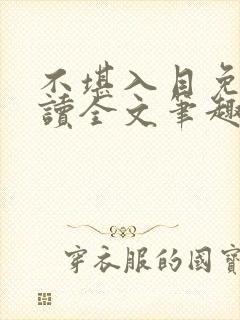 不堪入目免
讀全文筆趣
穿衣服的國寶